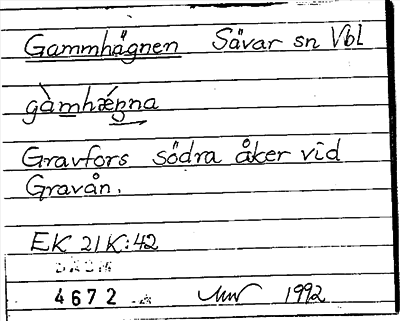 Gammhägnen Sävar sn Vbl
gàmhǽgna
Gravfors södra åker vid
Gravån.
EK 21K:42
DAUM
4672 1992